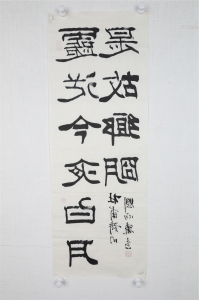 露從今夜白月
是故鄉明